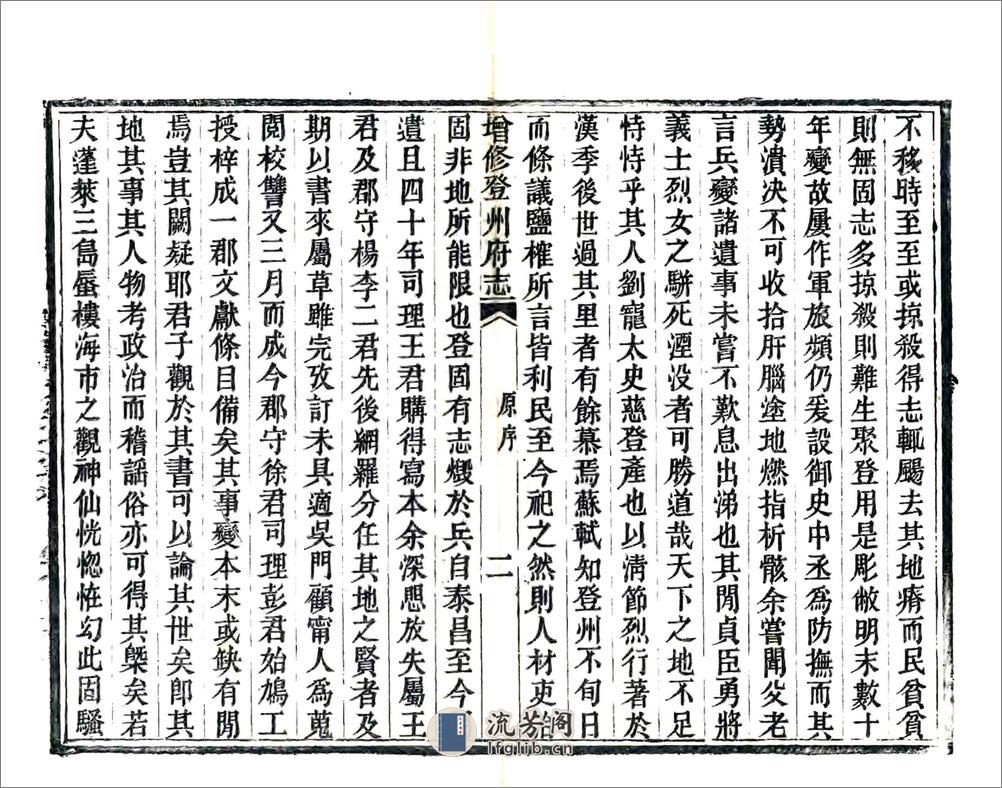 不移時至至或掠殺得志輒颺去其地瘠而民貧貧
則無固志多掠殺則難生聚登用是彫敝明末數十
年變故屢作軍旅頻仍爰設御史中丞爲防撫而其
勢潰决不可收拾肝腦塗地燃指析骸余嘗聞父老
言兵變諸遺事未嘗不歎息出涕也其閒貞臣勇將
義士烈女之駢死湮没者可勝道哉天下之地不足
恃恃乎其人劉寵太史慈登產也以淸節烈行著於
漢季後世過其里者有餘慕焉蘇軾知登州不旬日
而條議鹽榷所言皆利民至今祀之然則人材吏治
增修登州府志 原序 二
固非地所能限也登固有志燬於兵自泰昌至今
遺且四十年司理王君購得寫本余深思放失屬王
君及郡守楊李二君先後網羅分任其地之賢者及
期以書來屬草雖完攷訂未具適吳門顧甯人爲蒐
閱校讐又三月而成今郡守徐君司理彭君始鳩工
授梓成一郡文獻條目備矣其事變本末或缺有閒
焉豈其闕疑耶君子觀於其書可以論其世矣卽其
地其事其人物考政治而稽謡俗亦可得其槩矣若
夫蓬萊三島蜃樓海市之觀神仙恍惚恠幻此固騷
流芳阁
lfglib.cn